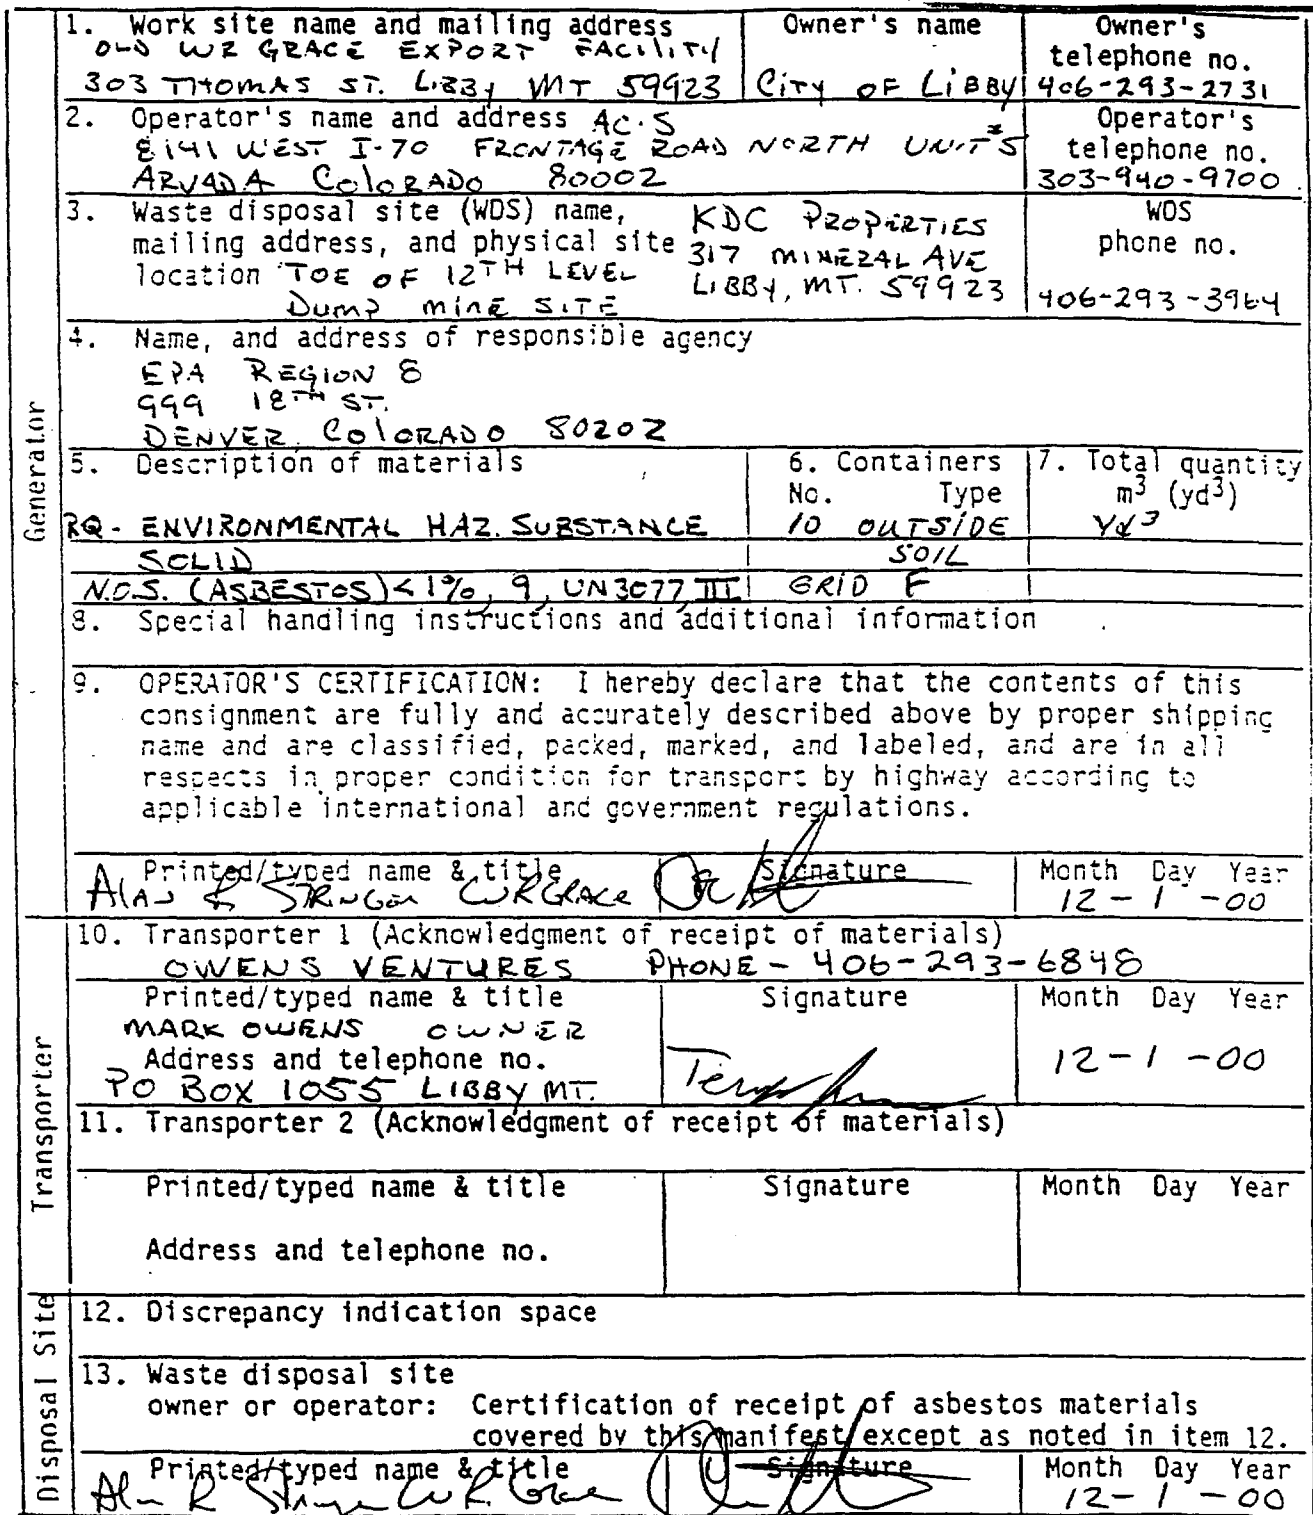 1. Work site name and mailing address
OLD WR GRACE EXPORT FACILITY
303 THOMAS ST. LIBBY MT 59923
Owner's name
CITY OF LIBBY
Owner's
telephone no.
406-293-2731
2. Operator's name and address AC.S
8141 WEST I-70 FRONTAGE ROAD NORTH UNIT #5
ARVADA COLORADO 80002
Operator's
telephone no.
303-940-9700
3. Waste disposal site (WDS) name,
mailing address, and physical site
location TOE OF 12TH LEVEL
DUMP MINE SITE
KDC PROPERTIES
317 MINERAL AVE
LIBBY, MT. 59923
WDS
phone no.
406-293-3964
4. Name, and address of responsible agency
EPA REGION 8
999 18TH ST.
DENVER, COLORADO 80202
Generator
5. Description of materials
6. Containers
No. Type
7. Total quantity
m3 (yd3)
RQ - ENVIRONMENTAL HAZ. SUBSTANCE
10 OUTSIDE
Yd3
SOLID
SOIL
N.O.S. (ASBESTOS) < 1%, 9, UN3077, III
GRID F
8. Special handling instructions and additional information
9. OPERATOR'S CERTIFICATION: I hereby declare that the contents of this
consignment are fully and accurately described above by proper shipping
name and are classified, packed, marked, and labeled, and are in all
respects in proper condition for transport by highway according to
applicable international and government regulations.
Printed/typed name & title
Alan R Stringer WR Grace
Signature
Month Day Year
12-1-00
10. Transporter 1 (Acknowledgment of receipt of materials)
OWENS VENTURES PHONE - 406-293-6848
Transporter
Printed/typed name & title
MARK OWENS OWNER
Address and telephone no.
PO BOX 1055 LIBBY MT.
Signature
Month Day Year
12-1-00
11. Transporter 2 (Acknowledgment of receipt of materials)
Printed/typed name & title
Address and telephone no.
Signature
Month Day Year
Disposal Site
12. Discrepancy indication space
13. Waste disposal site
owner or operator: Certification of receipt of asbestos materials
covered by this manifest except as noted in item 12.
Printed/typed name & title
Alan R Stringer W R Grace
Signature
Month Day Year
12-1-00